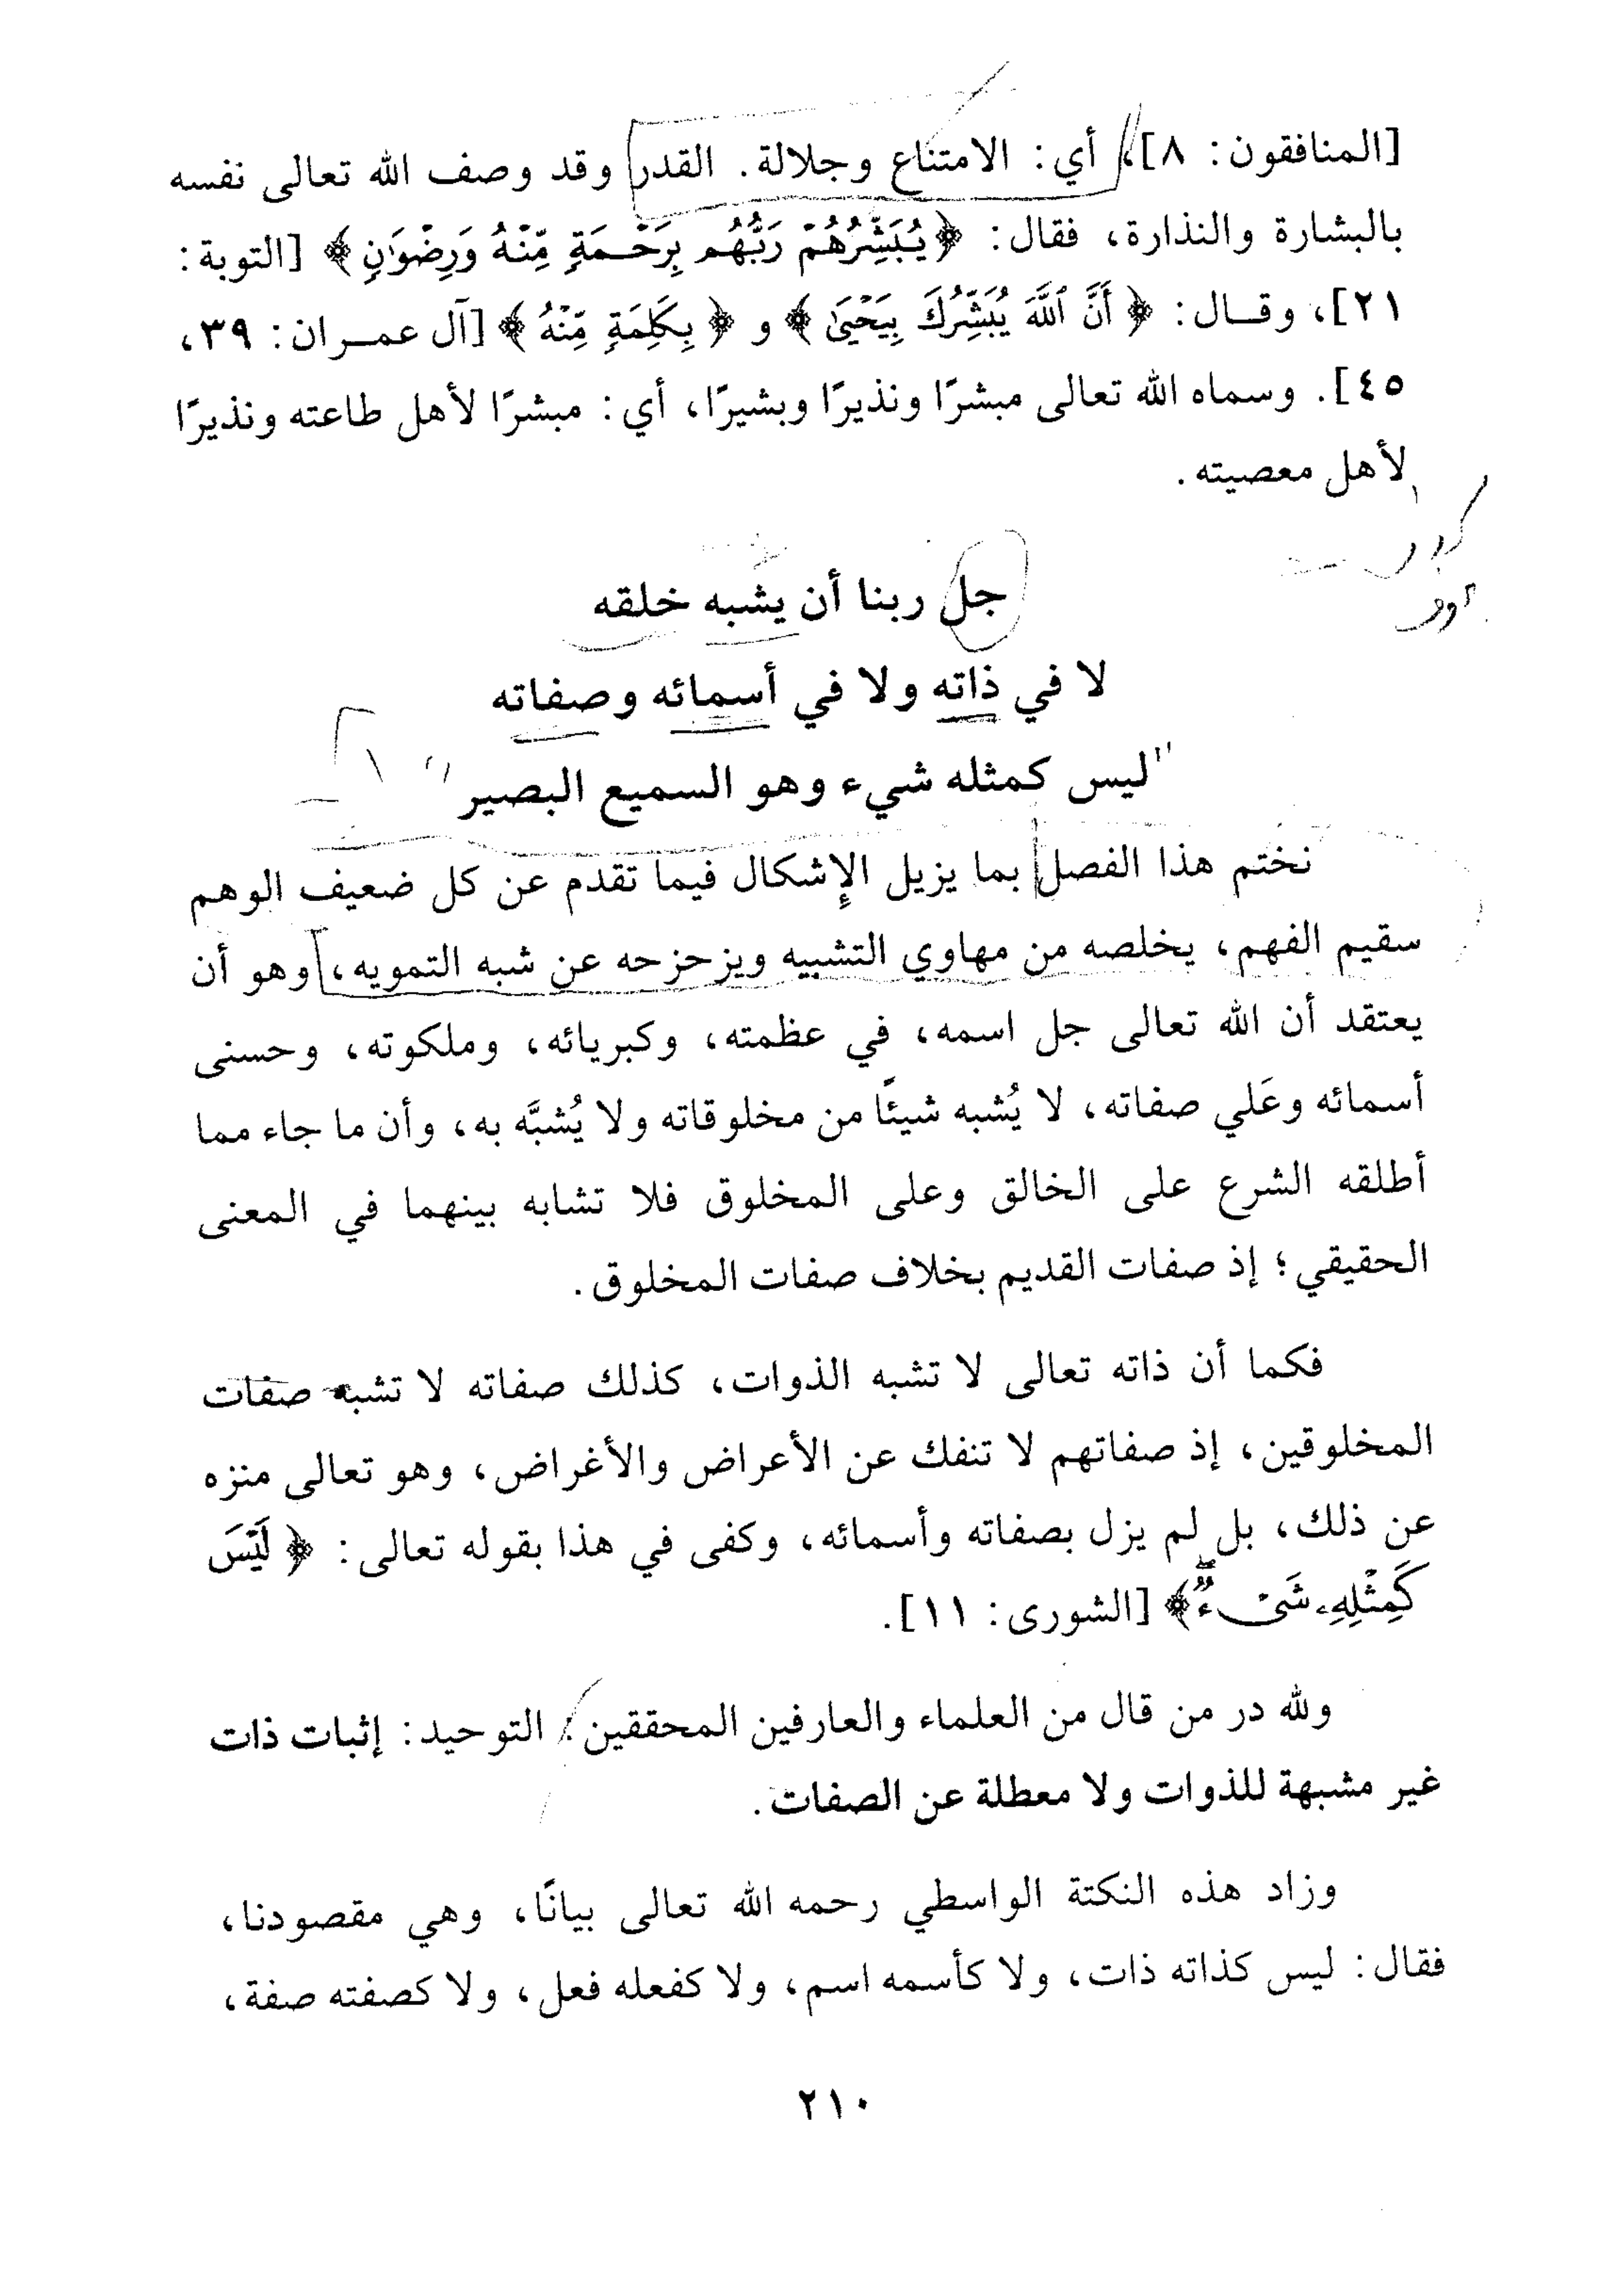 [المنافقون: ٨]، أي: الامتناع وجلالة. القدر وقد وصف الله تعالى نفسه
بالبشارة والنذارة، فقال: ﴿يُبَشِّرُهُمْ رَبُّهُم بِرَحْمَةٍ مِّنْهُ وَرِضْوَٰنٍ﴾ [التوبة:
٢١]، وقـال: ﴿أَنَّ ٱللَّهَ يُبَشِّرُكَ بِيَحْيَىٰ﴾ و ﴿بِكَلِمَةٍ مِّنْهُ﴾ [آل عمـران: ٣٩،
٤٥]. وسماه الله تعالى مبشرًا ونذيرًا وبشيرًا، أي: مبشرًا لأهل طاعته ونذيرًا
لأهل معصيته.
جل ربنا أن يشبه خلقه
لا في ذاته ولا في أسمائه وصفاته
"ليس كمثله شيء وهو السميع البصير"
نختم هذا الفصل بما يزيل الإِشكال فيما تقدم عن كل ضعيف الوهم
سقيم الفهم، يخلصه من مهاوي التشبيه ويزحزحه عن شبه التمويه، وهو أن
يعتقد أن الله تعالى جل اسمه، في عظمته، وكبريائه، وملكوته، وحسنى
أسمائه وعَلي صفاته، لا يُشبه شيئًا من مخلوقاته ولا يُشبَّه به، وأن ما جاء مما
أطلقه الشرع على الخالق وعلى المخلوق فلا تشابه بينهما في المعنى
الحقيقي؛ إذ صفات القديم بخلاف صفات المخلوق.
فكما أن ذاته تعالى لا تشبه الذوات، كذلك صفاته لا تشبه صفات
المخلوقين، إذ صفاتهم لا تنفك عن الأعراض والأغراض، وهو تعالى منزه
عن ذلك، بل لم يزل بصفاته وأسمائه، وكفى في هذا بقوله تعالى: ﴿لَيْسَ
كَمِثْلِهِۦ شَىْءٌۖ﴾ [الشورى: ١١].
ولله در من قال من العلماء والعارفين المحققين: التوحيد: إثبات ذات
غير مشبهة للذوات ولا معطلة عن الصفات.
وزاد هذه النكتة الواسطي رحمه الله تعالى بيانًا، وهي مقصودنا،
فقال: ليس كذاته ذات، ولا كأسمه اسم، ولا كفعله فعل، ولا كصفته صفة،
٢١٠